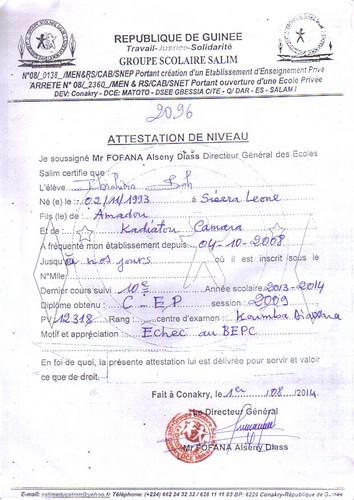 REPUBLIQUE DE GUINEE
Travail-Justice-Solidarité
GROUPE SCOLAIRE SALIM
N°08/_0138_/MEN&RS/CAB/SNEP Portant création d'un Etablissement d'Enseignement Privé
ARRETE N° 08/_2360_/MEN & RS/CAB/SNEP Portant ouverture d'une Ecole Privée
DEV: Conakry - DCE: MATOTO - DSEE GBESSIA CITE - Q/ DAR - ES - SALAM I
2096
ATTESTATION DE NIVEAU
Je soussigné Mr FOFANA Alseny Diass Directeur Général des Ecoles
Salim certifie que :
L'élève Ibrahima Bah
Né (e) le : 02/11/1993 à Siéera Leone
Fils (le) de : Amadou
Et de : Kadiatou Camara
A fréquenté mon établissement depuis 04-10-2008
Jusqu'à nos jours où il est inscrit sous le
N°Mlle
Dernier cours suivi 10e Année scolaire 2013-2014
Diplôme obtenu : C.E.P session : 2009
PV 12318 Rang : centre d'examen : Koumba Diawara
Motif et appréciation : Echec au BEPC
En foi de quoi, la présente attestation lui est délivrée pour servir et valoir
ce que de droit.
Fait à Conakry, le 1er /08 /2014
Le Directeur Général
Mr FOFANA Alseny Diass
E-mail: salimeducation@yahoo.fr Téléphone: (+224) 662 24 32 32 / 628 11 11 83 BP: 6226 Conakry-République de Guinée